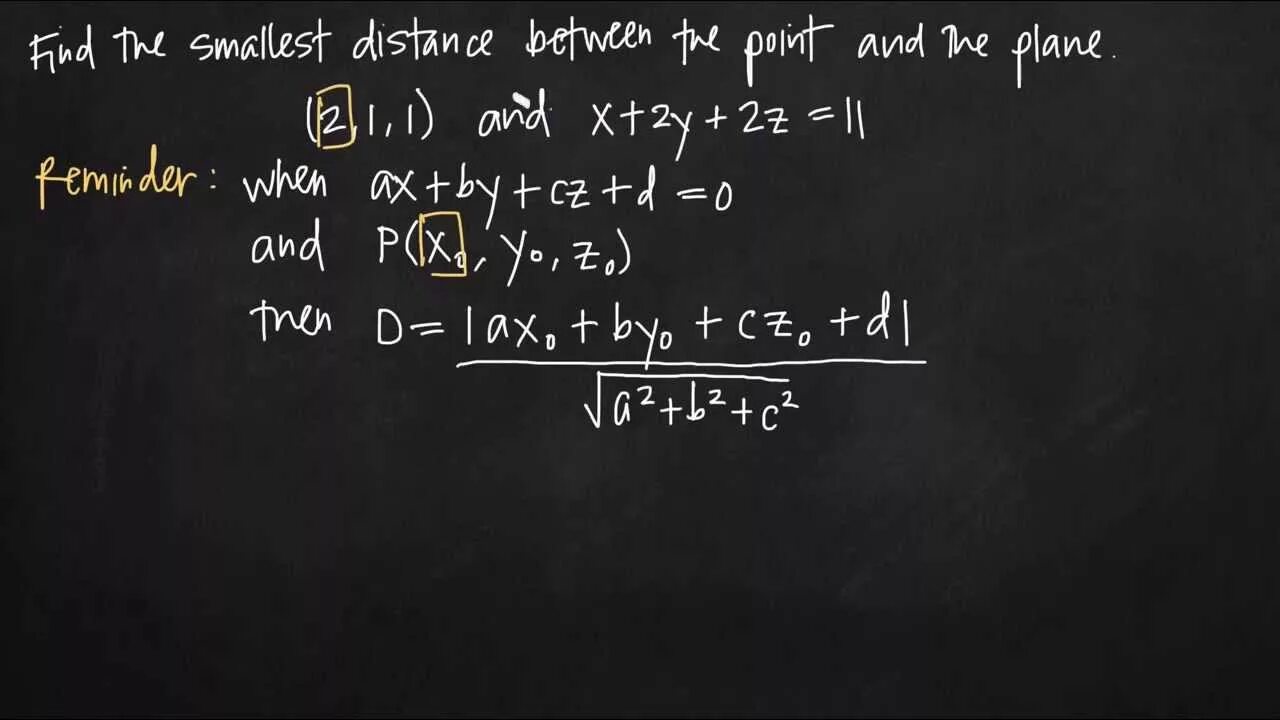 Find the smallest distance between the point and the plane.
(2,1,1) and x+2y+2z=11
Reminder: when ax+by+cz+d=0
and P(x₀, y₀, z₀)
then D=|ax₀+by₀+cz₀+d|
√a²+b²+c²